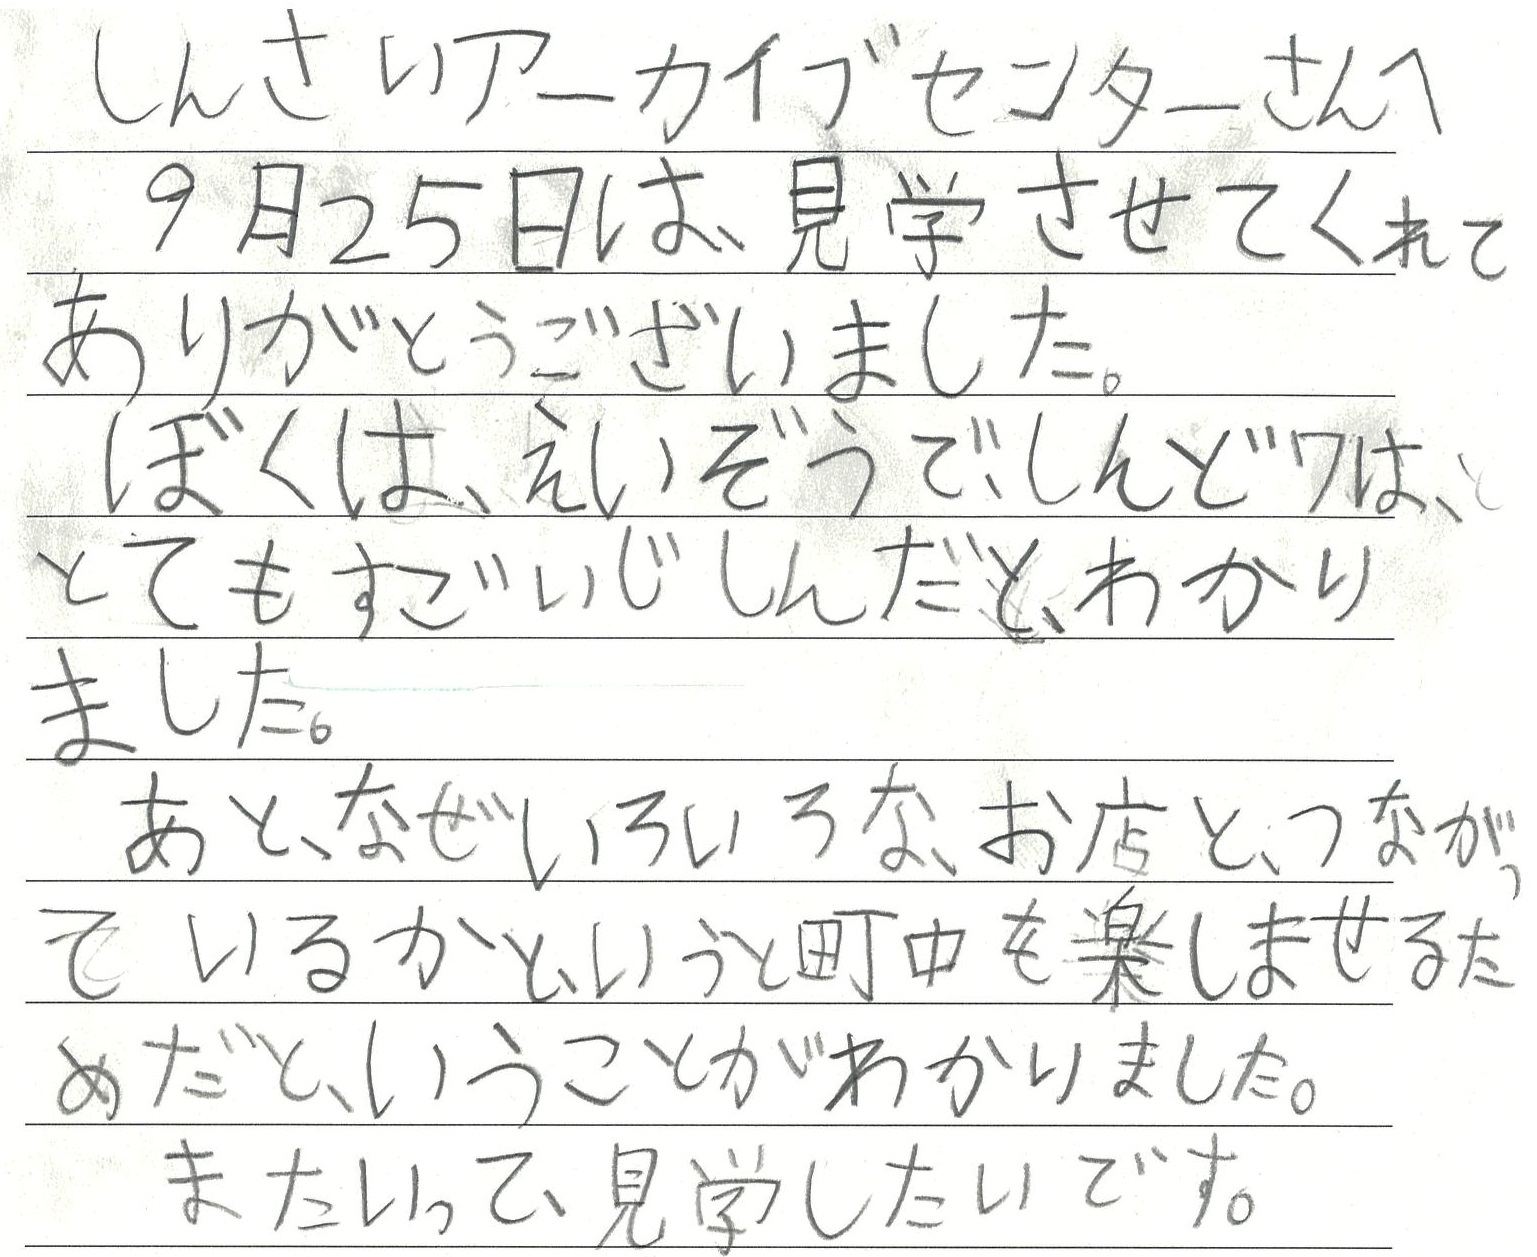 しんさいアーカイブセンターさんへ
9月25日は、見学させてくれて
ありがとうございました。
ぼくは、えいぞうで、しんど7は、と
とてもすごいじしんだと、わかり
ました。
あと、なぜいろいろな、お店と、つながっ
ているかと、いうと町中を楽しませるた
めだと、いうことがわかりました。
またいって、見学したいです。